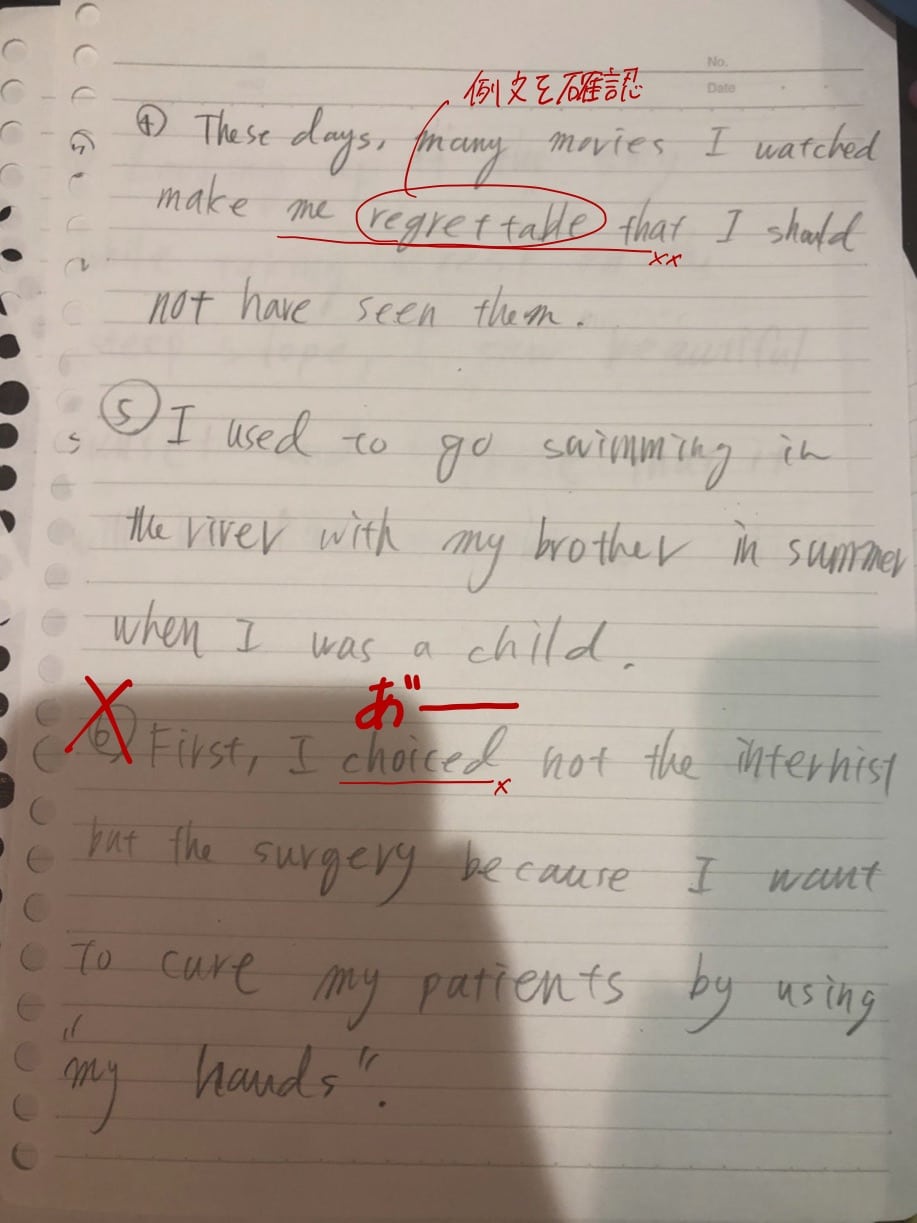 No.
Date
例文を確認
④ These days, many movies I watched
make me regrettable that I should
××
not have seen them.
⑤ I used to go swimming in
the river with my brother in summer
when I was a child.
あ゛ー
⑥ First, I choiced not the internist
×
but the surgery because I want
to cure my patients by using
"my hands".